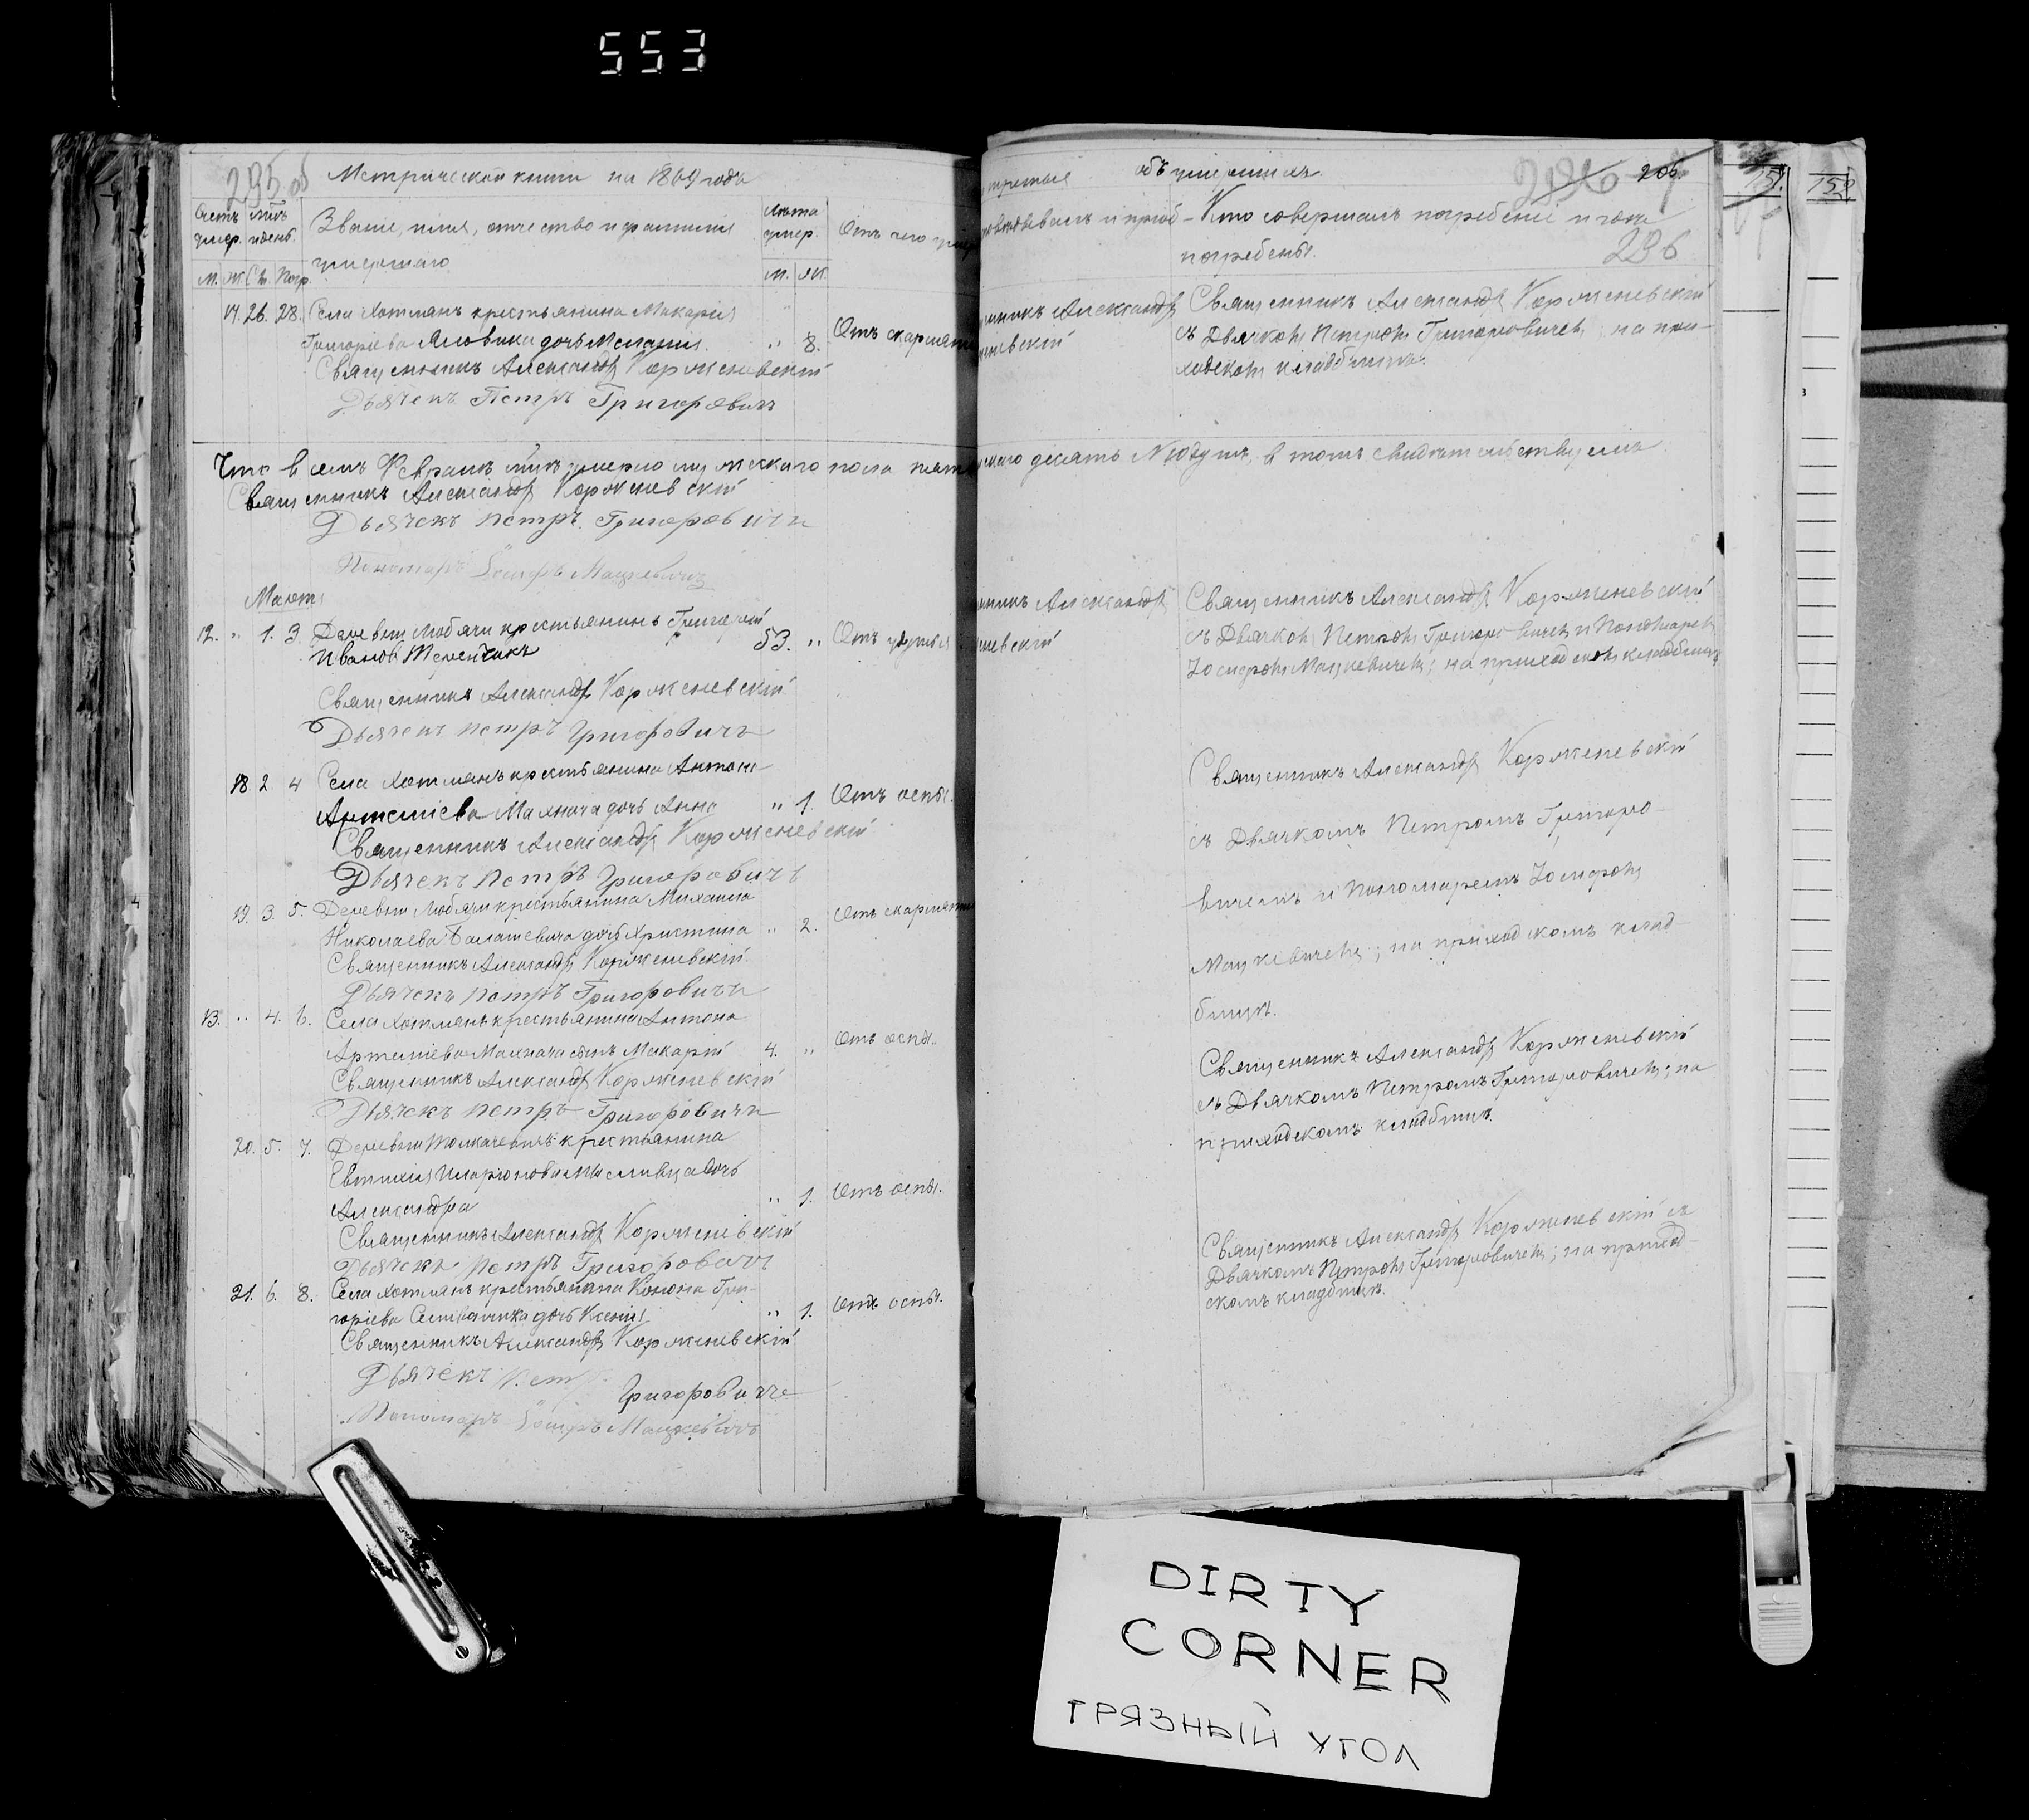 553
295 об
Метрической книги на 1869 годъ
Счетъ умер.
М. Ж.
Мѣс. и день.
См. Погр.
Званіе, имя, отчество и фамилія
умершаго.
Лѣта умер.
М. Ж.
Отъ чего умер
17. 26. 28. Села Хотлянъ крестьянина Макарія
Григоріева дочь Меланія. " 8. Отъ скарлати
Священникъ Александръ Корженевскій
Дьячекъ Петръ Григоровичъ
Что в семъ Февралѣ м-цѣ умерло мужескаго пола пять
Священникъ Александръ Корженевскій
Дьячекъ Петръ Григоровичъ
Пономарь Іосифъ Мацкевичъ
Мартъ
12. " 1. 3. Деревни Любячи крестьянинъ Григорій
Ивановъ Теренчикъ 53. " Отъ
Священникъ Александръ Корженевскій
Дьячекъ Петръ Григоровичъ
18. 2. 4 Села Хотлянъ крестьянина Антона
Артеміева Махнача дочь Анна " 1. Отъ оспы.
Священникъ Александръ Корженевскій
Дьячекъ Петръ Григоровичъ
19. 3. 5. Деревни Любячи крестьянина Михаила
Николаева Балашевича дочь Христина " 2. Отъ скарлати
Священникъ Александръ Корженевскій
Дьячекъ Петръ Григоровичъ
13. " 4. 6. Села Хотлянъ крестьянина Антона
Артеміева Махнача сынъ Макарій 4. " Отъ оспы.
Священникъ Александръ Корженевскій
Дьячекъ Петръ Григоровичъ
20. 5. 7. Деревни Толкачевичъ крестьянина
Евтихія Иларіонова Мысливца дочь
Александра " 1. Отъ оспы.
Священникъ Александръ Корженевскій
Дьячекъ Петръ Григоровичъ
21. 6. 8. Села Хотлянъ крестьянина Конона Гри-
горіева дочь Ксенія " 1. Отъ оспы.
Священникъ Александръ Корженевскій
Дьячекъ Петръ
Григоровичъ
Пономарь Іосифъ Мацкевичъ
третья объ умершихъ.
206.
296
повѣдывалъ и пріоб-
Кто совершалъ погребеніе и гдѣ
погребены.
енникъ Александръ
еневскій
Священникъ Александръ Корженевскій
съ Дьячкомъ Петромъ Григоровичемъ; на при-
ходскомъ кладбищѣ.
скаго десять душъ, в томъ свидѣтельствуемъ
енникъ Александръ
еневскій
Священникъ Александръ Корженевскій
съ Дьячкомъ Петромъ Григоровичемъ и Пономаремъ
Іосифомъ Мацкевичемъ; на приходскомъ кладбищѣ
Священникъ Александръ Корженевскій
съ Дьячкомъ Петромъ Григоро-
вичемъ и Пономаремъ Іосифомъ
Мацкевичемъ; на приходскомъ клад-
бищѣ.
Священникъ Александръ Корженевскій
съ Дьячкомъ Петромъ Григоровичемъ; на
приходскомъ кладбищѣ.
Священникъ Александръ Корженевскій съ
Дьячкомъ Петромъ Григоровичемъ; на приход-
скомъ кладбищѣ.
DIRTY
CORNER
ГРЯЗНЫЙ УГОЛ